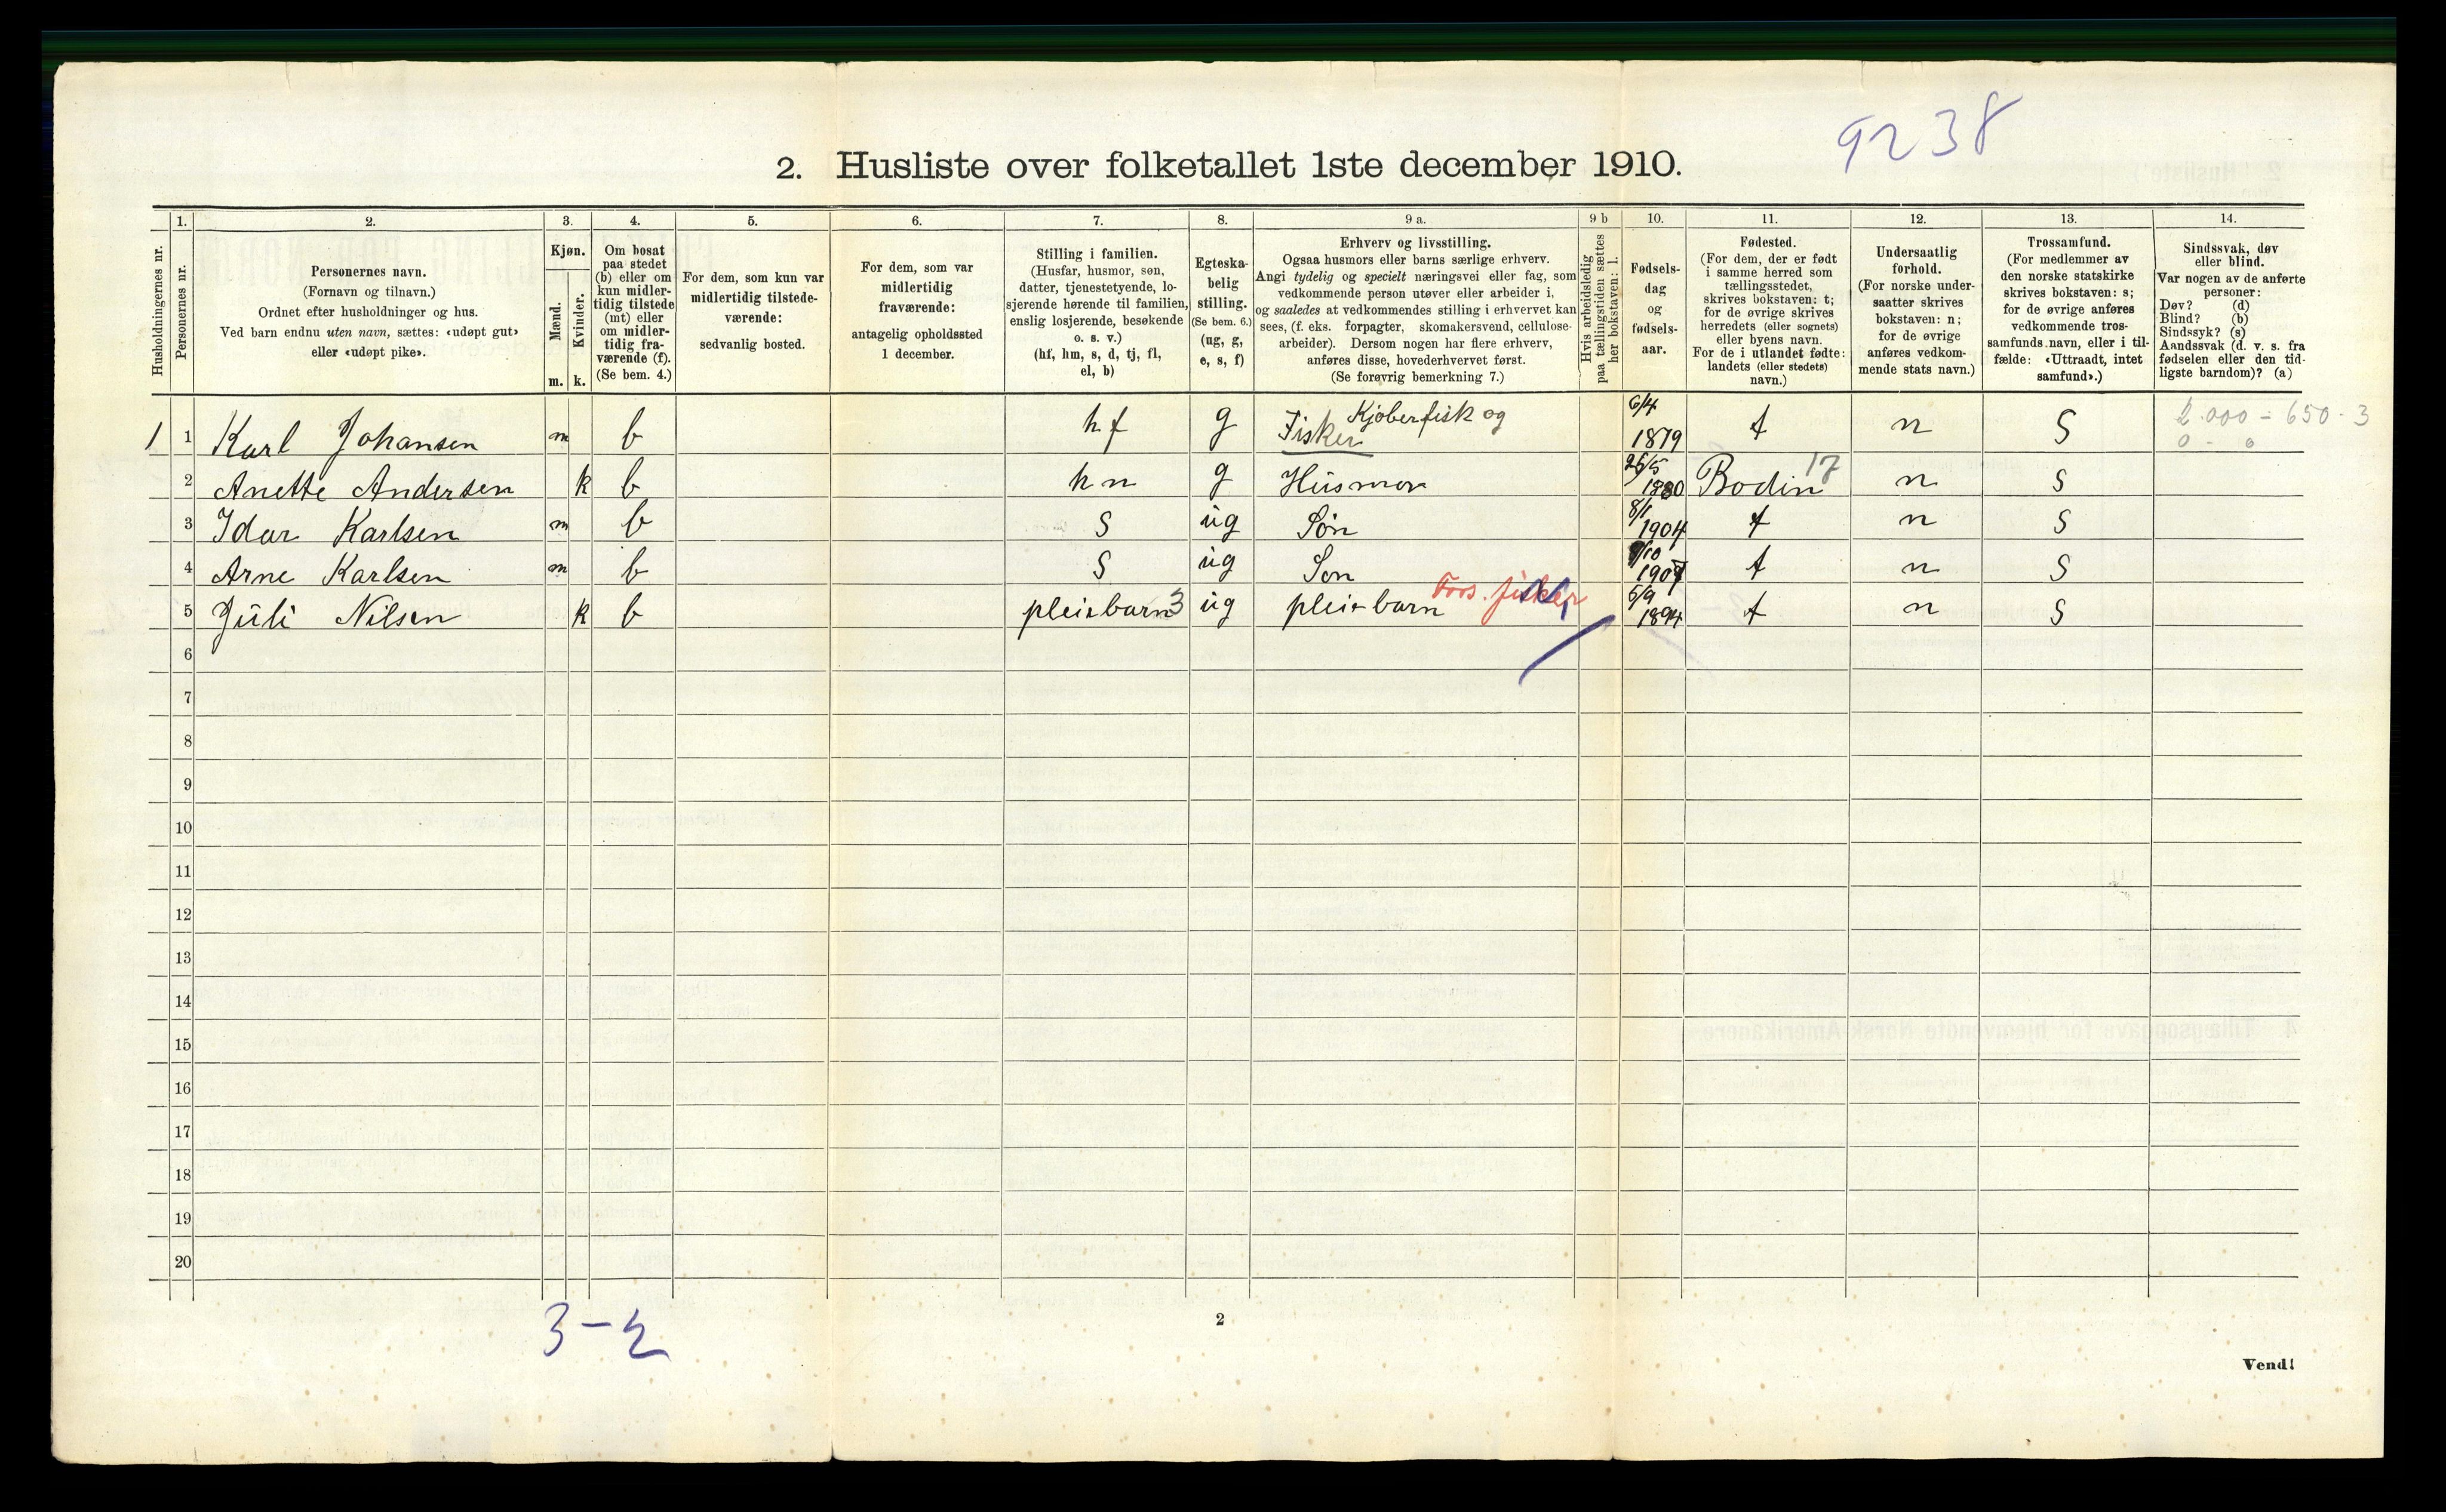 9238
2. Husliste over folketallet 1ste december 1910.
Husholdningernes nr.
1.
Personernes nr.
2.
Personernes navn.
(Fornavn og tilnavn.)
Ordnet efter husholdninger og hus.
Ved barn endnu uten navn, sættes: «udøpt gut»
eller «udøpt pike».
3.
Kjøn.
Mænd.
Kvinder.
m. k.
4.
Om bosat
paa stedet
(b) eller om
kun midler-
tidig tilstede
(mt) eller
om midler-
tidig fra-
værende (f).
(Se bem. 4.)
5.
For dem, som kun var
midlertidig tilstede-
værende:
sedvanlig bosted.
6.
For dem, som var
midlertidig
fraværende:
antagelig opholdssted
1 december.
7.
Stilling i familien.
(Husfar, husmor, søn,
datter, tjenestetyende, lo-
sjerende hørende til familien,
enslig losjerende, besøkende
o. s. v.)
(hf, hm, s, d, tj, fl,
el, b)
8.
Egteska-
belig
stilling.
(Se bem. 6.)
(ug, g,
e, s, f)
9 a.
Erhverv og livsstilling.
Ogsaa husmors eller barns særlige erhverv.
Angi tydelig og specielt næringsvei eller fag, som
vedkommende person utøver eller arbeider i,
og saaledes at vedkommendes stilling i erhvervet kan
sees, (f. eks. forpagter, skomakersvend, cellulose-
arbeider). Dersom nogen har flere erhverv,
anføres disse, hovederhvervet først.
(Se forøvrig bemerkning 7.)
9 b
Hvis arbeidsledig
paa tællingstiden sættes
her bokstaven: l.
10.
Fødsels-
dag
og
fødsels-
aar.
11.
Fødested.
(For dem, der er født
i samme herred som
tællingsstedet,
skrives bokstaven: t;
for de øvrige skrives
herredets (eller sognets)
eller byens navn.
For de i utlandet fødte:
landets (eller stedets)
navn.)
12.
Undersaatlig
forhold.
(For norske under-
saatter skrives
bokstaven: n;
for de øvrige
anføres vedkom-
mende stats navn.)
13.
Trossamfund.
(For medlemmer av
den norske statskirke
skrives bokstaven: s;
for de øvrige anføres
vedkommende tros-
samfunds navn, eller i til-
fælde: «Uttraadt, intet
samfund».)
14.
Sindssvak, døv
eller blind.
Var nogen av de anførte
personer:
Døv? (d)
Blind? (b)
Sindssyk? (s)
Aandssvak (d. v. s. fra
fødselen eller den tid-
ligste barndom)? (a)
1 1 Karl Johansen m b hf g Fisker Kjøberfisk og 6/4 1879 t n S 2.000 - 650 - 3
0 - 0
2 Anette Andersen k b hn g Husmor 25/5 1880 Bodin 17 n S
3 Idar Karlsen m b S ug Søn 8/1 1904 t n S
4 Arne Karlsen m b S ug Søn /10 1907 t n S
5 Juli Nilsen k b pleiebarn 3 ug pleiebarn Fors. fisker 6/9 1894 t n S
6
7
8
9
10
11
12
13
14
15
16
17
18
19
20
3-2
2
Vend!